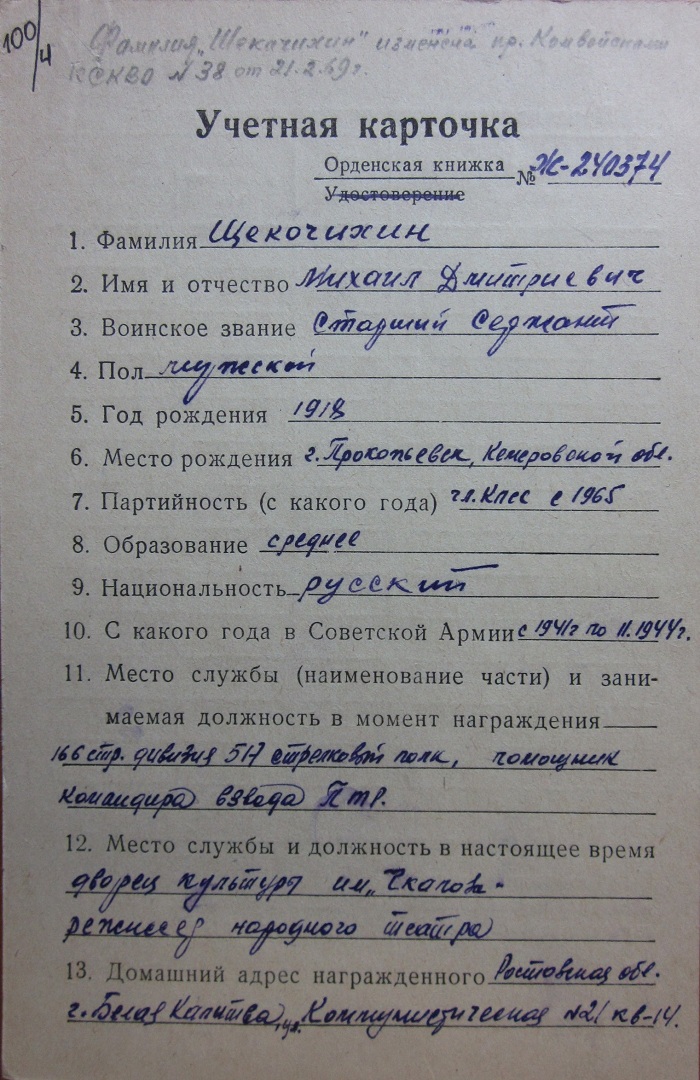 100/4
Фамилия „Шекачихин" изменена пр. Комвойсками
КСКВО N 38 от 21.2.69г.
Учетная карточка
Орденская книжка № Ж-240374
Удостоверение
1. Фамилия Щекочихин
2. Имя и отчество Михаил Дмитриевич
3. Воинское звание Старший Сержант
4. Пол мужской
5. Год рождения 1918
6. Место рождения г. Прокопьевск, Кемеровской обл.
7. Партийность (с какого года) чл. Кпсс с 1965
8. Образование среднее
9. Национальность русский
10. С какого года в Советской Армии с 1941г по 11.1944г.
11. Место службы (наименование части) и зани-
маемая должность в момент награждения
166 стр. дивизия 517 стрелковый полк, помощник
командира взвода Птр.
12. Место службы и должность в настоящее время
дворец культуры им. „Чкалова-
режиссер народного театра
13. Домашний адрес награжденного Ростовская обл.
г. Белая Калитва, ул. Коммунистическая N21 кв-14.